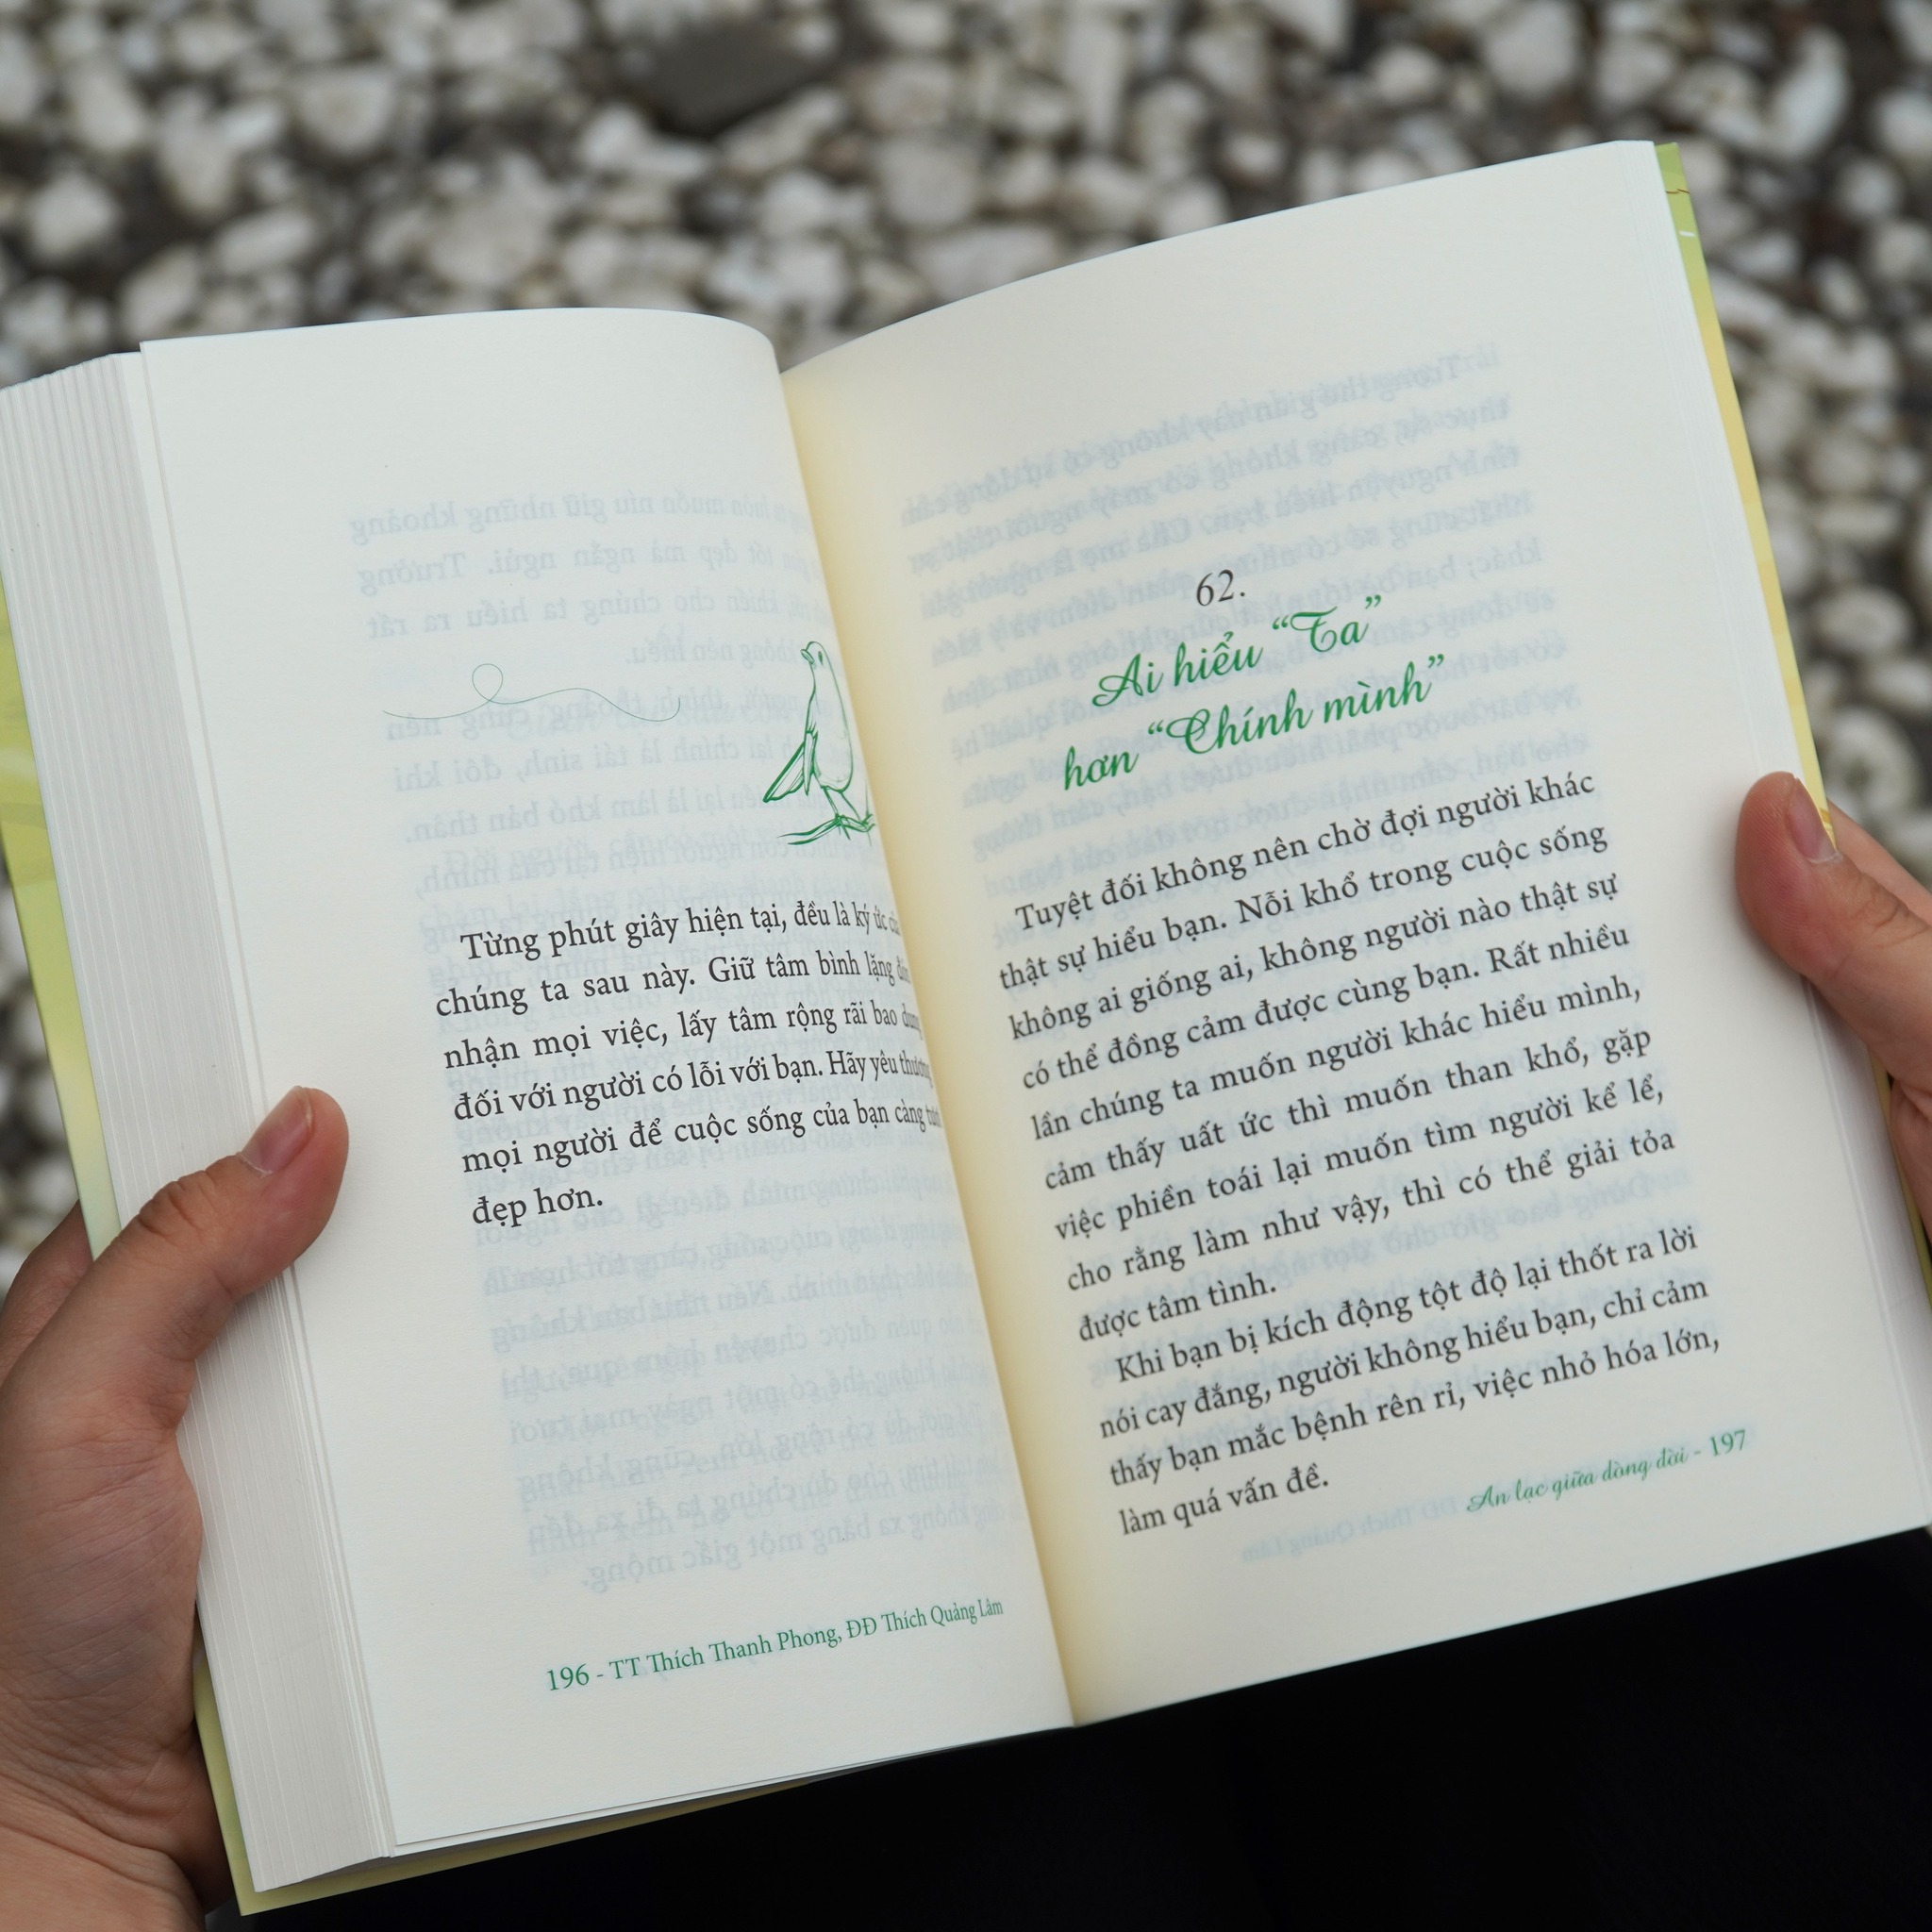 Từng phút giây hiện tại, đều là ký ức
chúng ta sau này. Giữ tâm bình lặng
nhận mọi việc, lấy tâm rộng rãi bao dung
đối với người có lỗi với bạn. Hãy yêu thương
mọi người để cuộc sống của bạn càng
đẹp hơn.
196 - TT Thích Thanh Phong, ĐĐ Thích Quảng Lâm
62.
Ai hiểu “Ta”
hơn “Chính mình”
Tuyệt đối không nên chờ đợi người khác
thật sự hiểu bạn. Nỗi khổ trong cuộc sống
không ai giống ai, không người nào thật sự
có thể đồng cảm được cùng bạn. Rất nhiều
lần chúng ta muốn người khác hiểu mình,
cảm thấy uất ức thì muốn than khổ, gặp
việc phiền toái lại muốn tìm người kể lể,
cho rằng làm như vậy, thì có thể giải tỏa
được tâm tình.
Khi bạn bị kích động tột độ lại thốt ra lời
nói cay đắng, người không hiểu bạn, chỉ cảm
thấy bạn mắc bệnh rên rỉ, việc nhỏ hóa lớn,
làm quá vấn đề.
An lạc giữa dòng đời - 197